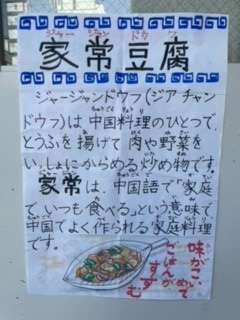 ジャー ジャン ドウ フ
家常豆腐
ジャージャンドウフ(ジアチャン
ドウフ)は中国料理のひとつで、
とうふを揚げて肉や野菜を
い,しょにからめる炒め物です。
家常は、中国語で「家庭
で、いつも食べる」という意味で、
中国でよく作られる家庭料理
です。
味がこいめで
ごはんが
すすむ